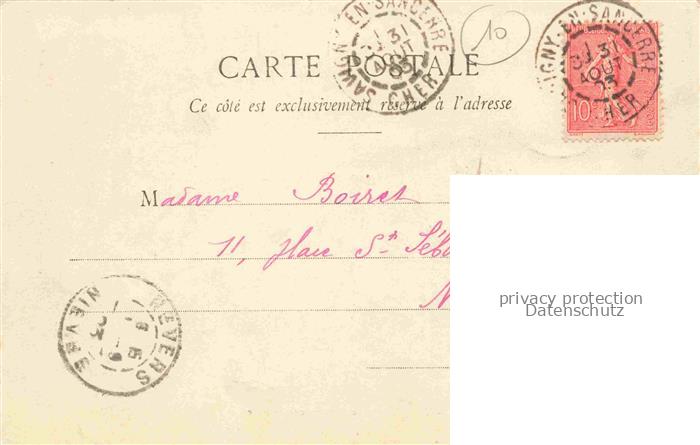 SAVIGNY-EN-SANCERRE
31
AOUT
03
CHER
10
IGNY-EN-SANCERRE
31
AOUT
HER
10
CARTE POSTALE
Ce côté est exclusivement réservé à l'adresse
Madame Boiret
11, place St Séb
N
privacy protection
Datenschutz
NEVERS
NIEVRE
03